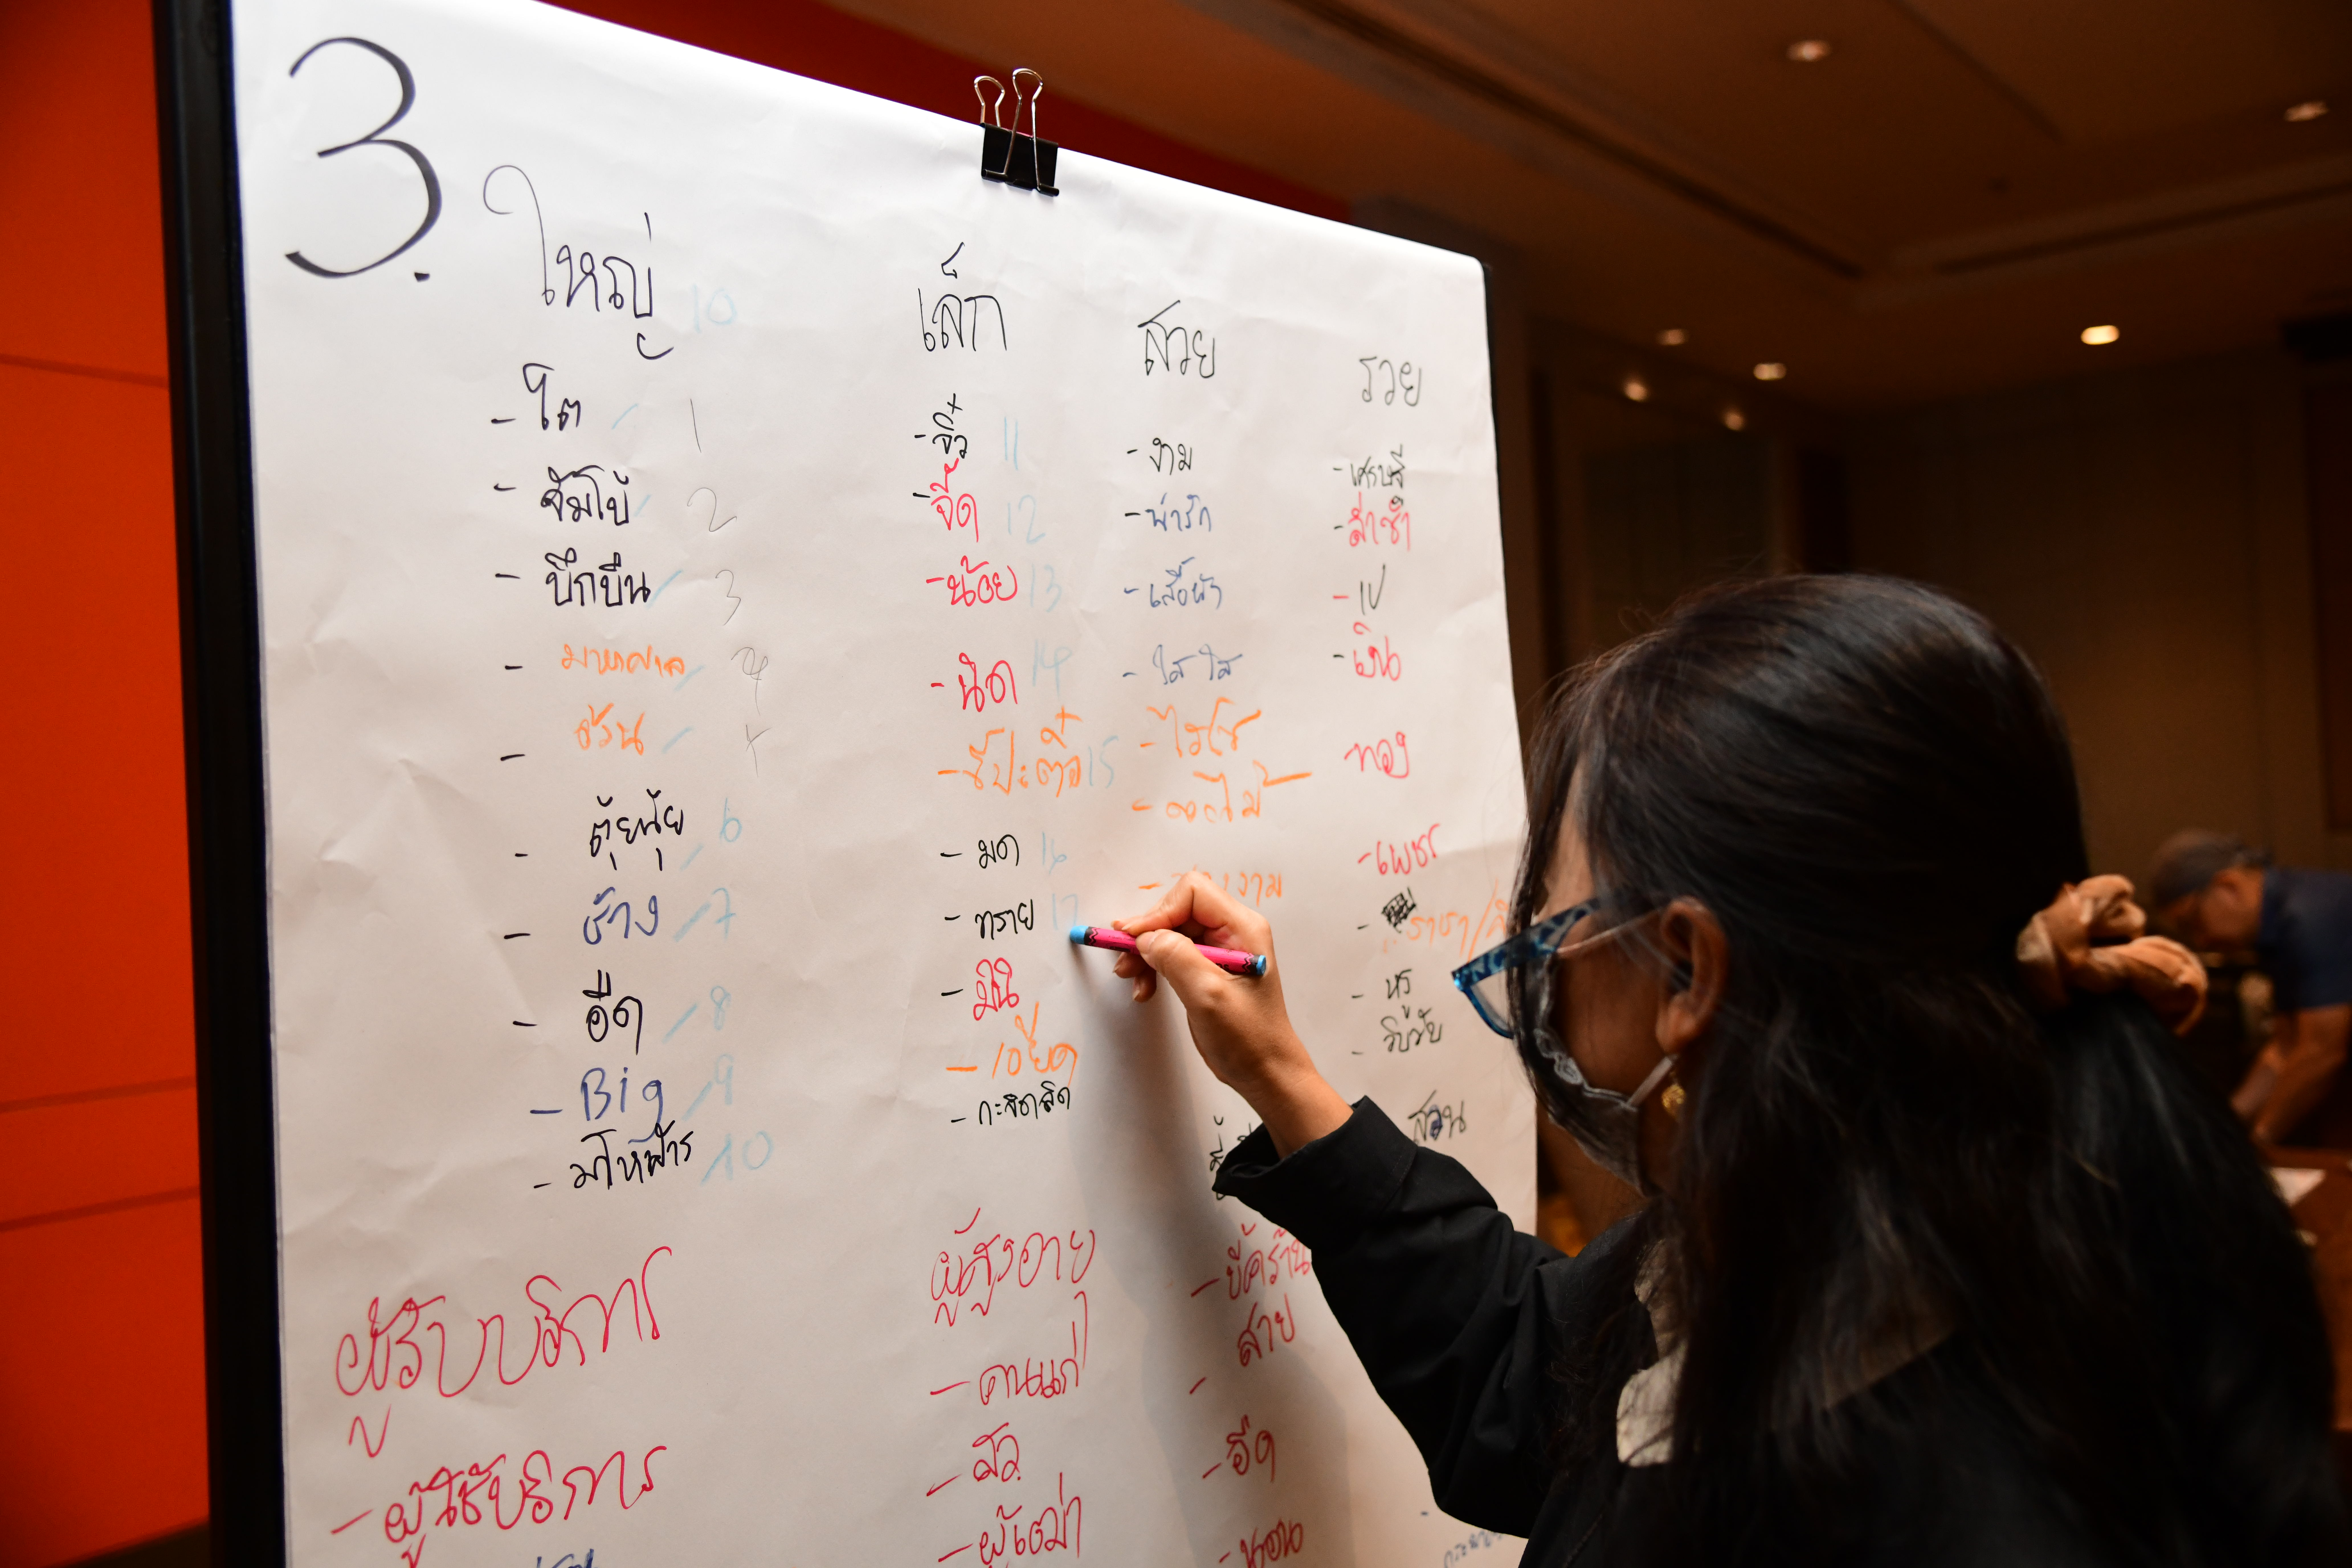 3.
ใหญ่ 10
- โต / 1
- จัมโบ้ / 2
- บึกบึน / 3
- มหาศาล / 4
- อ้วน /
- ตุ้ยนุ้ย / 6
- ช้าง / 7
- อืด / 8
- Big / 9
- มโหฬาร / 10
เล็ก
- จิ๋ว 11
- จี๊ด 12
- น้อย 13
- นิด 14
- ขี้ปะติ๋ว 15
- มด 16
- ทราย 17
- มินิ
- กะจิดลิด
สวย
- งาม
- น่ารัก
- เสื้อผ้า
- ใส ใส
- ไฮโซ
- ดอกไม้
รวย
- เศรษฐี
- ล่ำซำ
- เงิน
- ทอง
- เพชร
- ราชา/
- หรู
- วิบวับ
ผู้รับบริการ
- ผู้ใช้บริการ
ผู้สูงอายุ
- คนแก่
- สว.
- ผู้เฒ่า
- ขี้คร้าน
- สาย
- อืด
- นอน